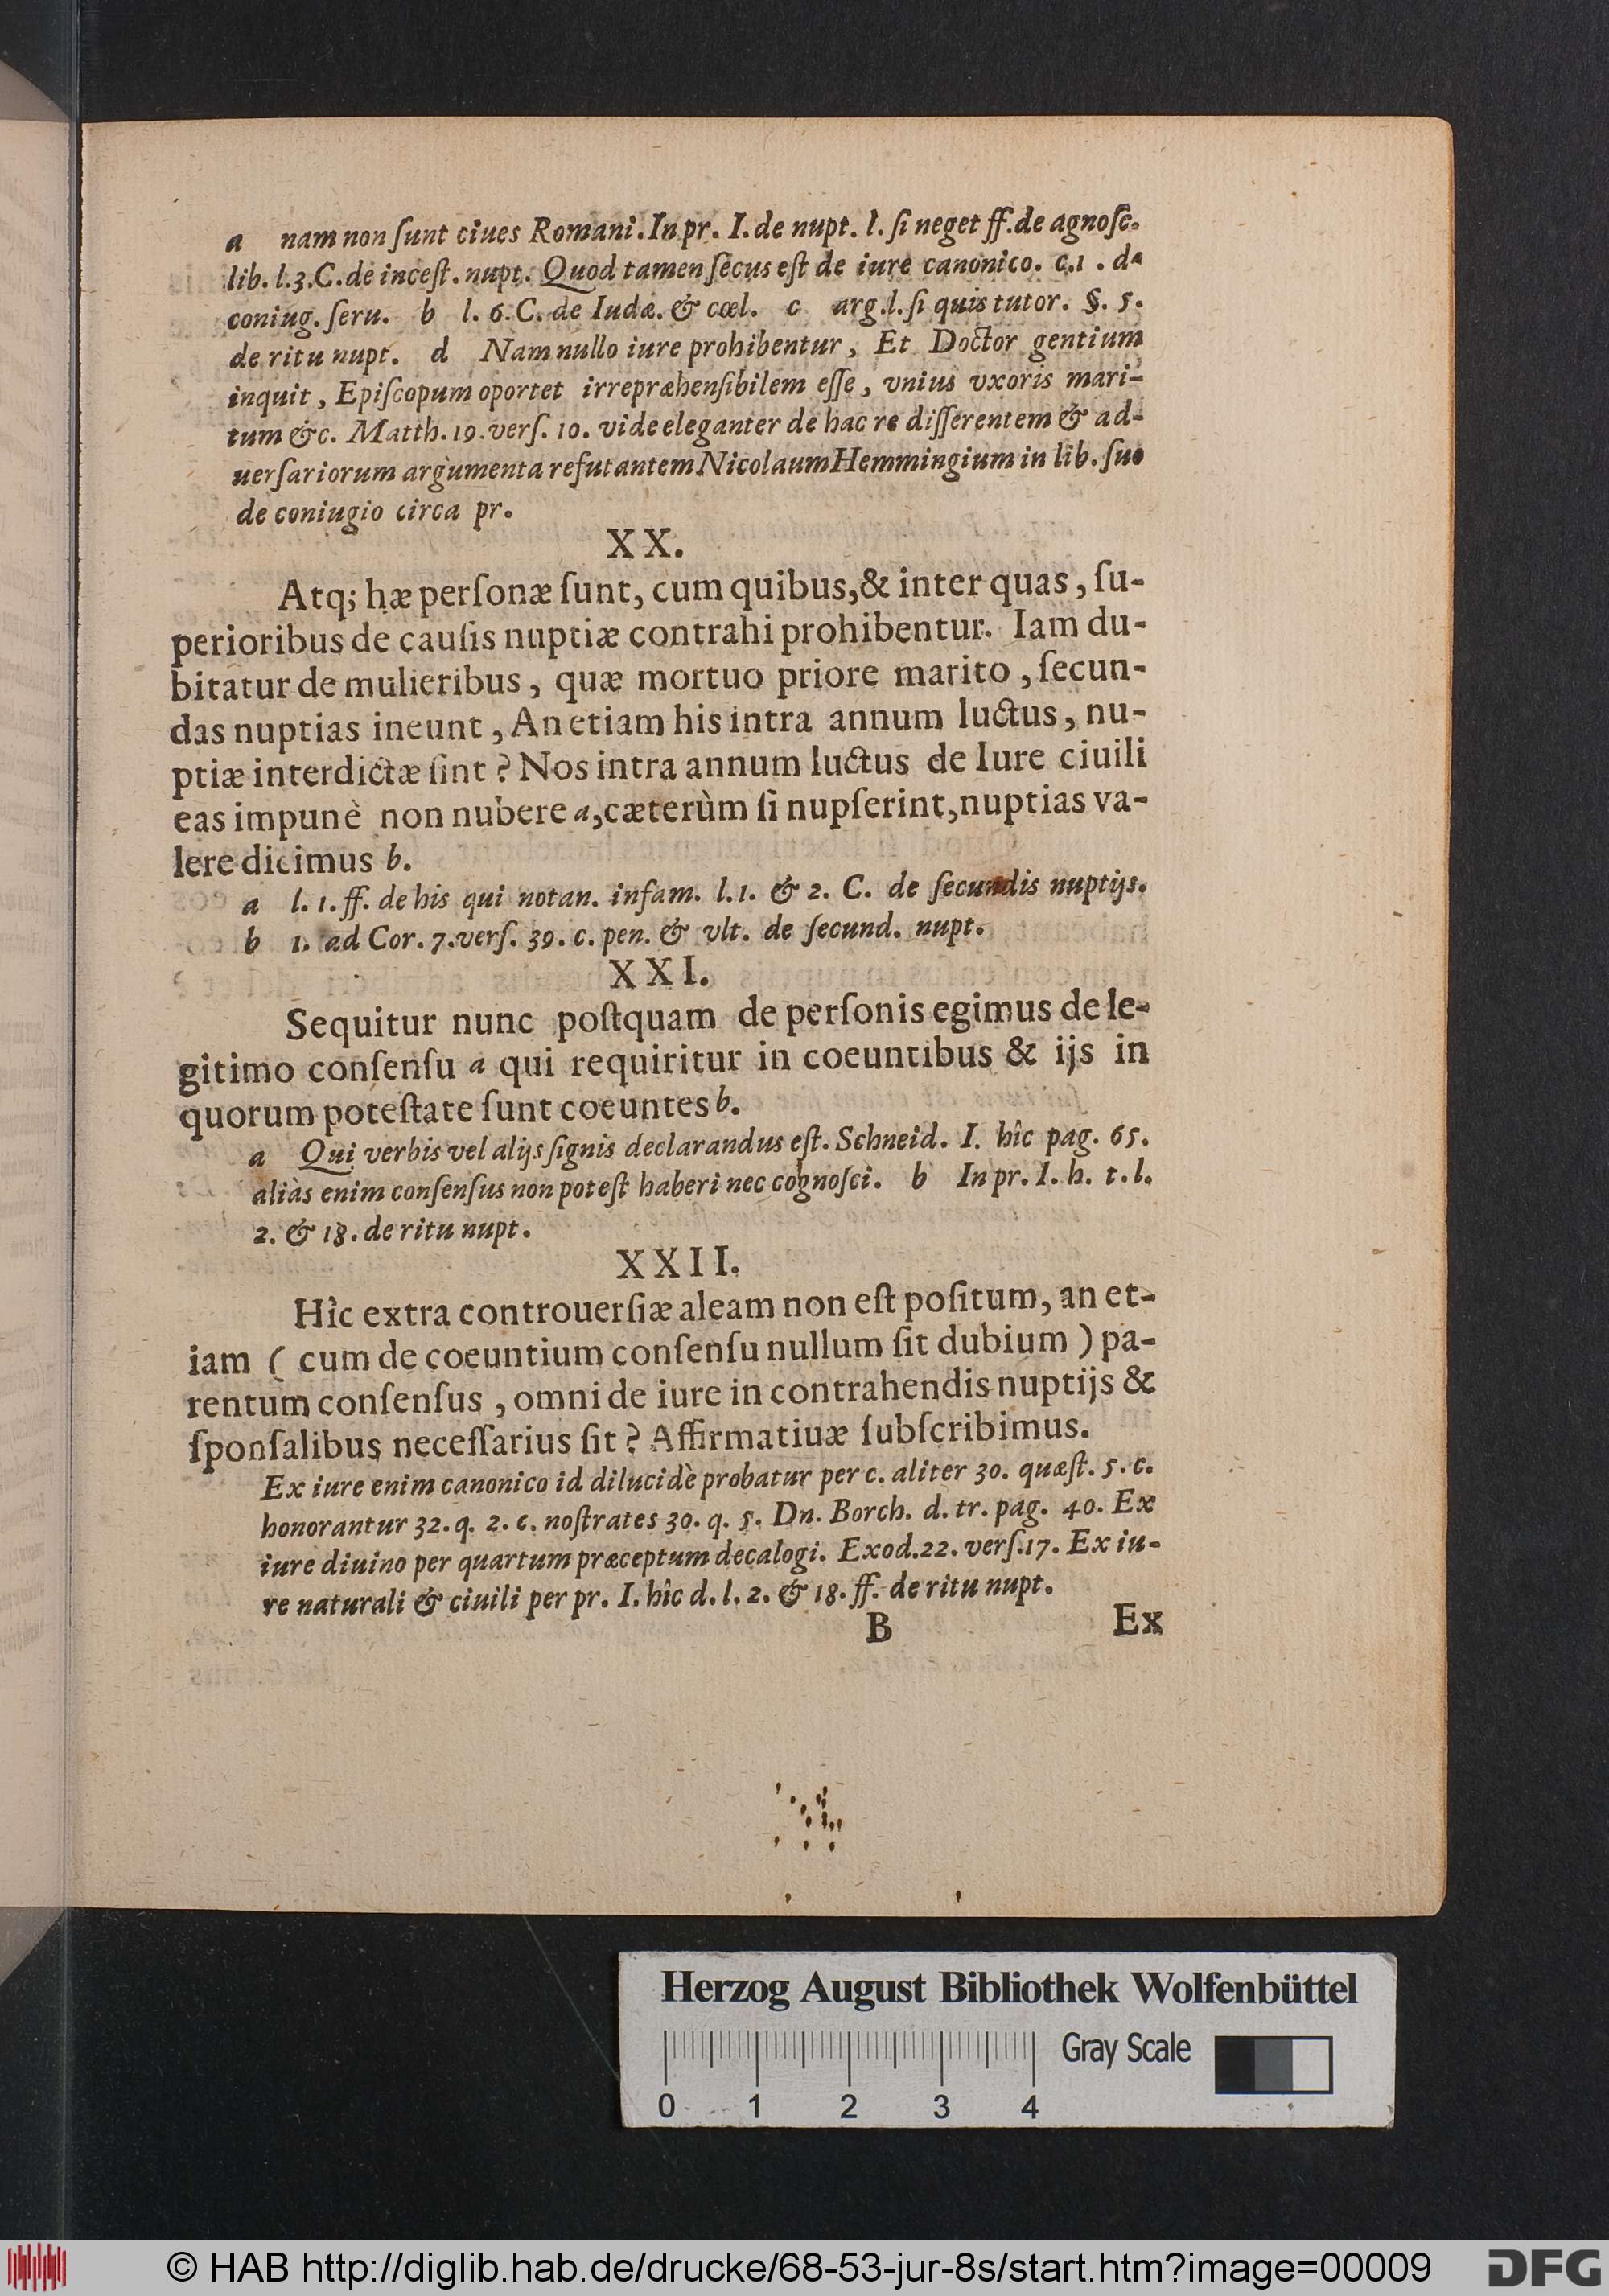 a nam non ſunt ciues Romani. In pr. I. de nupt. l. ſi neget ff. de agnoſc.
lib. l. 3. C. de inceſt. nupt. Quod tamen ſecus eſt de iure canonico. c. 1. de
coniug. ſeru. b l. 6. C. de Iudæ. & cœl. c arg. l. ſi quis tutor. §. 5.
de ritu nupt. d Nam nullo iure prohibentur, Et Doctor gentium
inquit, Epiſcopum oportet irrepræhenſibilem eſſe, vnius vxoris mari-
tum &c. Matth. 19. verſ. 10. vide eleganter de hac re diſſerentem & ad-
uerſariorum argumenta refutantem Nicolaum Hemmingium in lib. ſuo
de coniugio circa pr.
XX.
Atq; hæ perſonæ ſunt, cum quibus, & inter quas, ſu-
perioribus de cauſis nuptiæ contrahi prohibentur. Iam du-
bitatur de mulieribus, quæ mortuo priore marito, ſecun-
das nuptias ineunt, An etiam his intra annum luctus, nu-
ptiæ interdictæ ſint? Nos intra annum luctus de Iure ciuili
eas impunè non nubere a, cæterùm ſi nupſerint, nuptias va-
lere dicimus b.
a l. 1. ff. de his qui notan. infam. l. 1. & 2. C. de ſecundis nuptijs.
b 1. ad Cor. 7. verſ. 39. c. pen. & vlt. de ſecund. nupt.
XXI.
Sequitur nunc poſtquam de perſonis egimus de le-
gitimo conſenſu a qui requiritur in coeuntibus & ijs in
quorum poteſtate ſunt coeuntes b.
a Qui verbis vel alijs ſignis declarandus eſt. Schneid. I. hîc pag. 65.
aliàs enim conſenſus non poteſt haberi nec cognoſci. b In pr. I. h. t. l.
2. & 18. de ritu nupt.
XXII.
Hîc extra controuerſiæ aleam non eſt poſitum, an et-
iam ( cum de coeuntium conſenſu nullum ſit dubium ) pa-
rentum conſenſus, omni de iure in contrahendis nuptijs &
ſponſalibus neceſſarius ſit? Affirmatiuæ ſubſcribimus.
Ex iure enim canonico id dilucidè probatur per c. aliter 30. quæſt. 5. c.
honorantur 32. q. 2. c. noſtrates 30. q. 5. Dn. Borch. d. tr. pag. 40. Ex
iure diuino per quartum præceptum decalogi. Exod. 22. verſ. 17. Ex iu-
re naturali & ciuili per pr. I. hîc d. l. 2. & 18. ff. de ritu nupt.
B Ex
Herzog August Bibliothek Wolfenbüttel
Gray Scale
0 1 2 3 4
© HAB http://diglib.hab.de/drucke/68-53-jur-8s/start.htm?image=00009
DFG